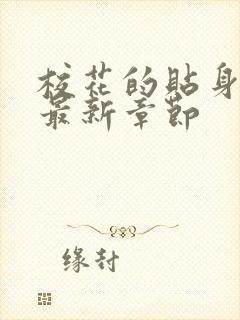 校花的贴身
最新章节
缘封